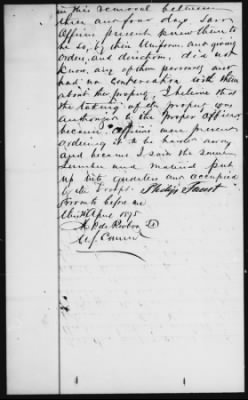 in this removal between
three and four days. Saw
Officers present knew them to
be so, by their Uniform and giving
orders, and directions, did not
know any of them personally and
had no conversation with them
about the property. I believe that
the taking of the property was
authorized by the proper Officers
because Officers were present
ordering it to be hauled away
and because I said the same
lumber and material put
up into quarters and occupied
by the Troops. Philip Faust
Sworn to before me
this April 1875
U.S. Comr